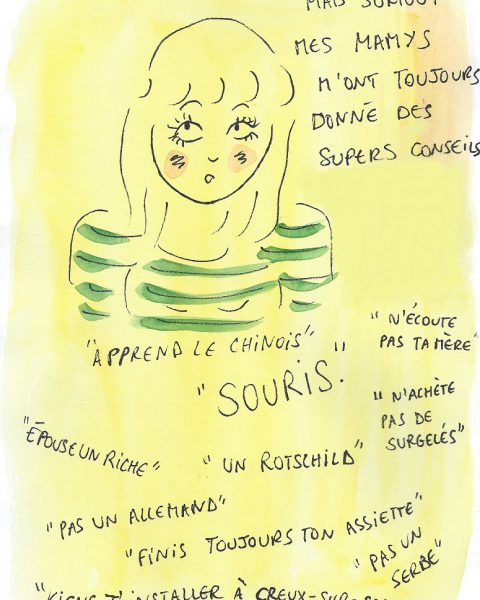 MAIS SURTOUT
MES MAMYS
M'ONT TOUJOURS
DONNÉ DES
SUPERS CONSEILS
"APPREND LE CHINOIS"
"N'ÉCOUTE
PAS TA MÈRE"
"SOURIS."
"N'ACHÈTE
PAS DE
SURGELÉS"
"ÉPOUSE UN RICHE"
"UN ROTSCHILD"
"PAS UN ALLEMAND"
"FINIS TOUJOURS TON ASSIETTE"
"PAS UN
SERBE"
"VIENS T'INSTALLER À CREUX-SUR-